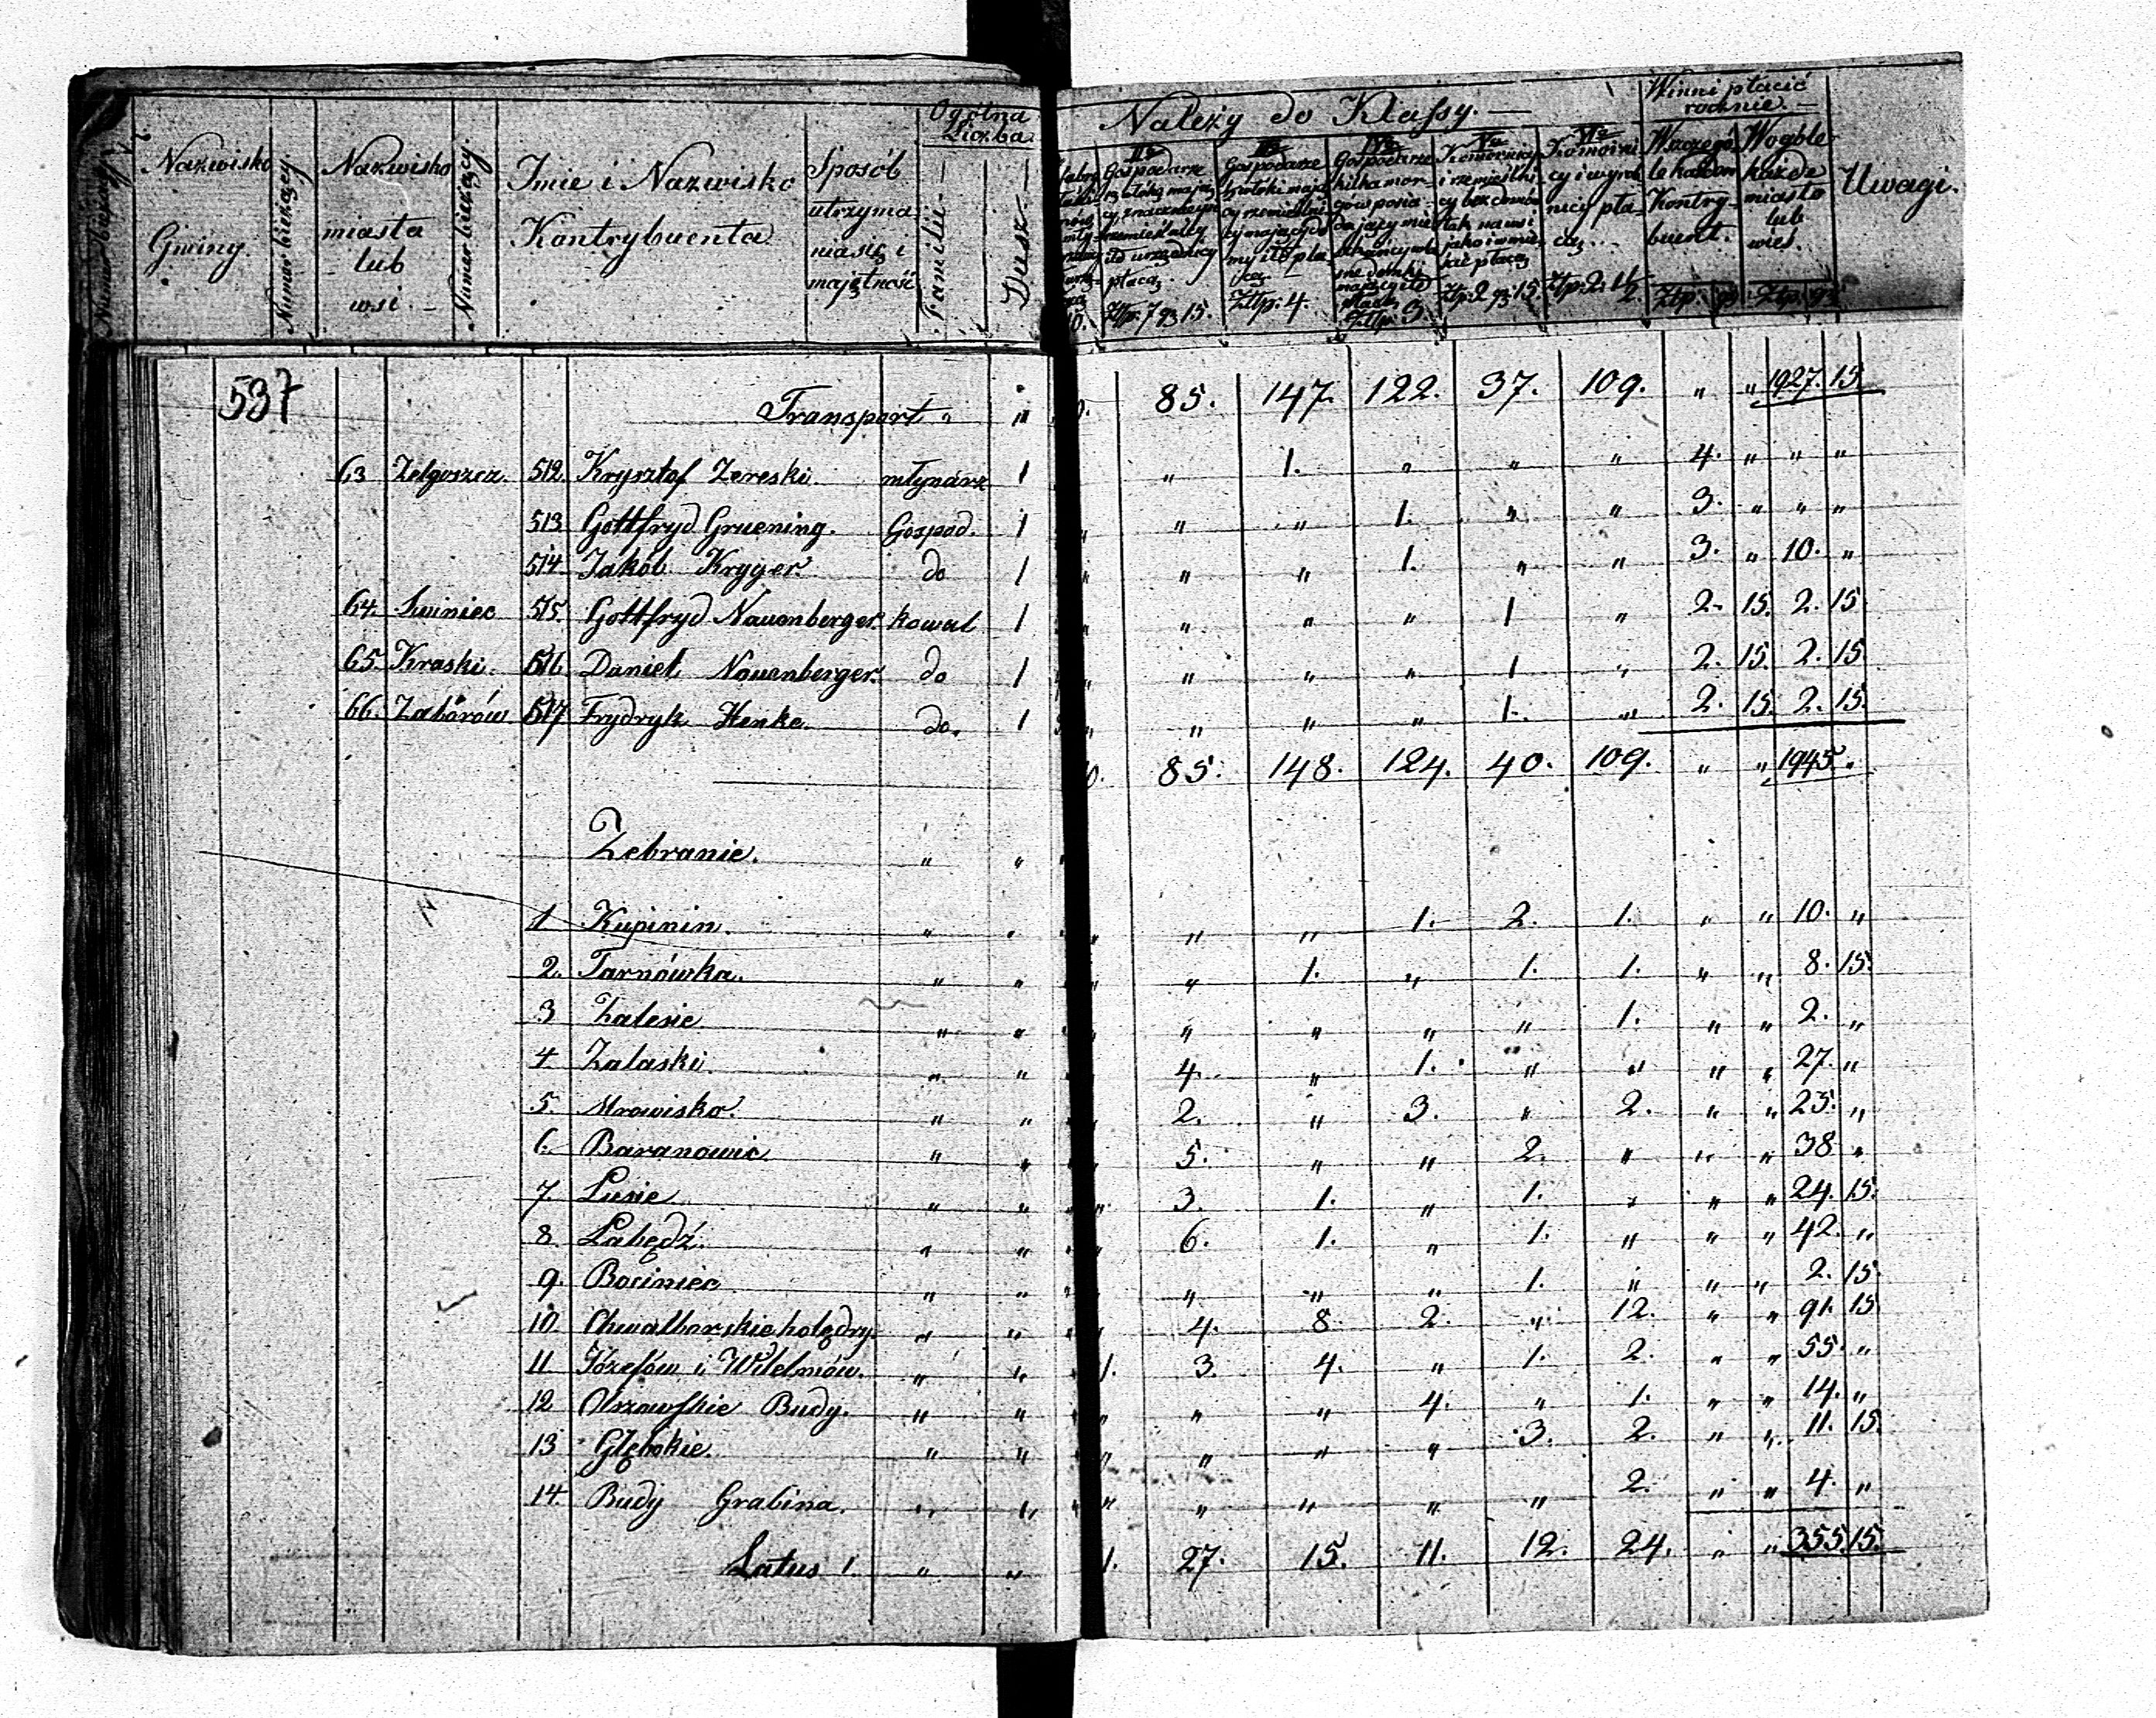 Nazwisko Gminy.
Numer bieżący
Nazwisko miasta lub wsi.
Numer bieżący
Imie i Nazwisko Kontrybuenta
Sposób utrzyma niasię i majętność
Ogólna Liczba
Familii
Dusz
Należy do Klassy.
IIa Gospodarze
Ztp: 7 gr 15.
IIIa Gospodarze
Ztp: 4.
IVa Gospodarze kilka mor-
Ztp: 3
Va Komornicy i rzemieślni cy
Ztp: 2 gr: 15.
VIa
Ztp: 2.
Winni płacić rocznie.
Kontry-buent.
Ztp: gr
Wogóle każde miasto lub wieś.
Ztp: gr
Uwagi.
537
Transport " " 85. 147. 122. 37. 109. " " 1927. 15
63 Zelgoszcz. 512. Krysztof Zereski. młynarz 1 " 1. " " " 4. " " "
513 Gottfryd Gruening. Gospod. 1 " " " 1. " " 3. " " "
514 Jakób Kryger. do 1 " " " 1. " " 3. " 10. "
64. Swiniec 515. Gottfryd Nauenberger. kowal 1 " " " " 1 " 2. 15. 2. 15
65. Kraski. 516 Daniel Nauenberger. do 1 " " " " 1 " 2. 15. 2. 15.
66. Zaborów 517 Frydryk Henke. do. 1 " " " " 1. " 2. 15. 2. 15.
85. 148. 124. 40. 109. " " 1945. "
Zebranie. " "
1 Kupinin. " " " " " 1. 2. 1. " " 10. "
2. Tarnówka. " " " " 1. " 1. 1. " " 8. 15.
3 Zalesie " " " " " " " 1. " " 2. "
4 Zalaski. " " 4. " 1. " " " " 27. "
5. Mrowisko. " " " 2. " 3. " 2. " " 25. "
6. Baranowic " " " 5. " " 2. " " " 38 "
7. Lusie " " " 3. 1. " 1. " " " 24. 15.
8. Łabędź. " " " 6. 1. " 1. " " " 42. "
9. Bociniec " " " " " 1. " " " 2. 15.
10. Chwalborskie holędry. " " " 4. 8 2. " 12. " " 91. 15
11 Józefów i Wilelmów. " " 1. 3. 4. " 1. 2. " " 55. "
12 Olszowskie Budy. " " " " " 4. " 1. " " 14. "
13 Głębokie. " " " " " " 3. 2. " " 11. 15.
14. Budy Grabina. " " " " " " " 2. " " 4. "
Latus 1. " " 1. 27. 15. 11. 12. 24. " " 355. 15.